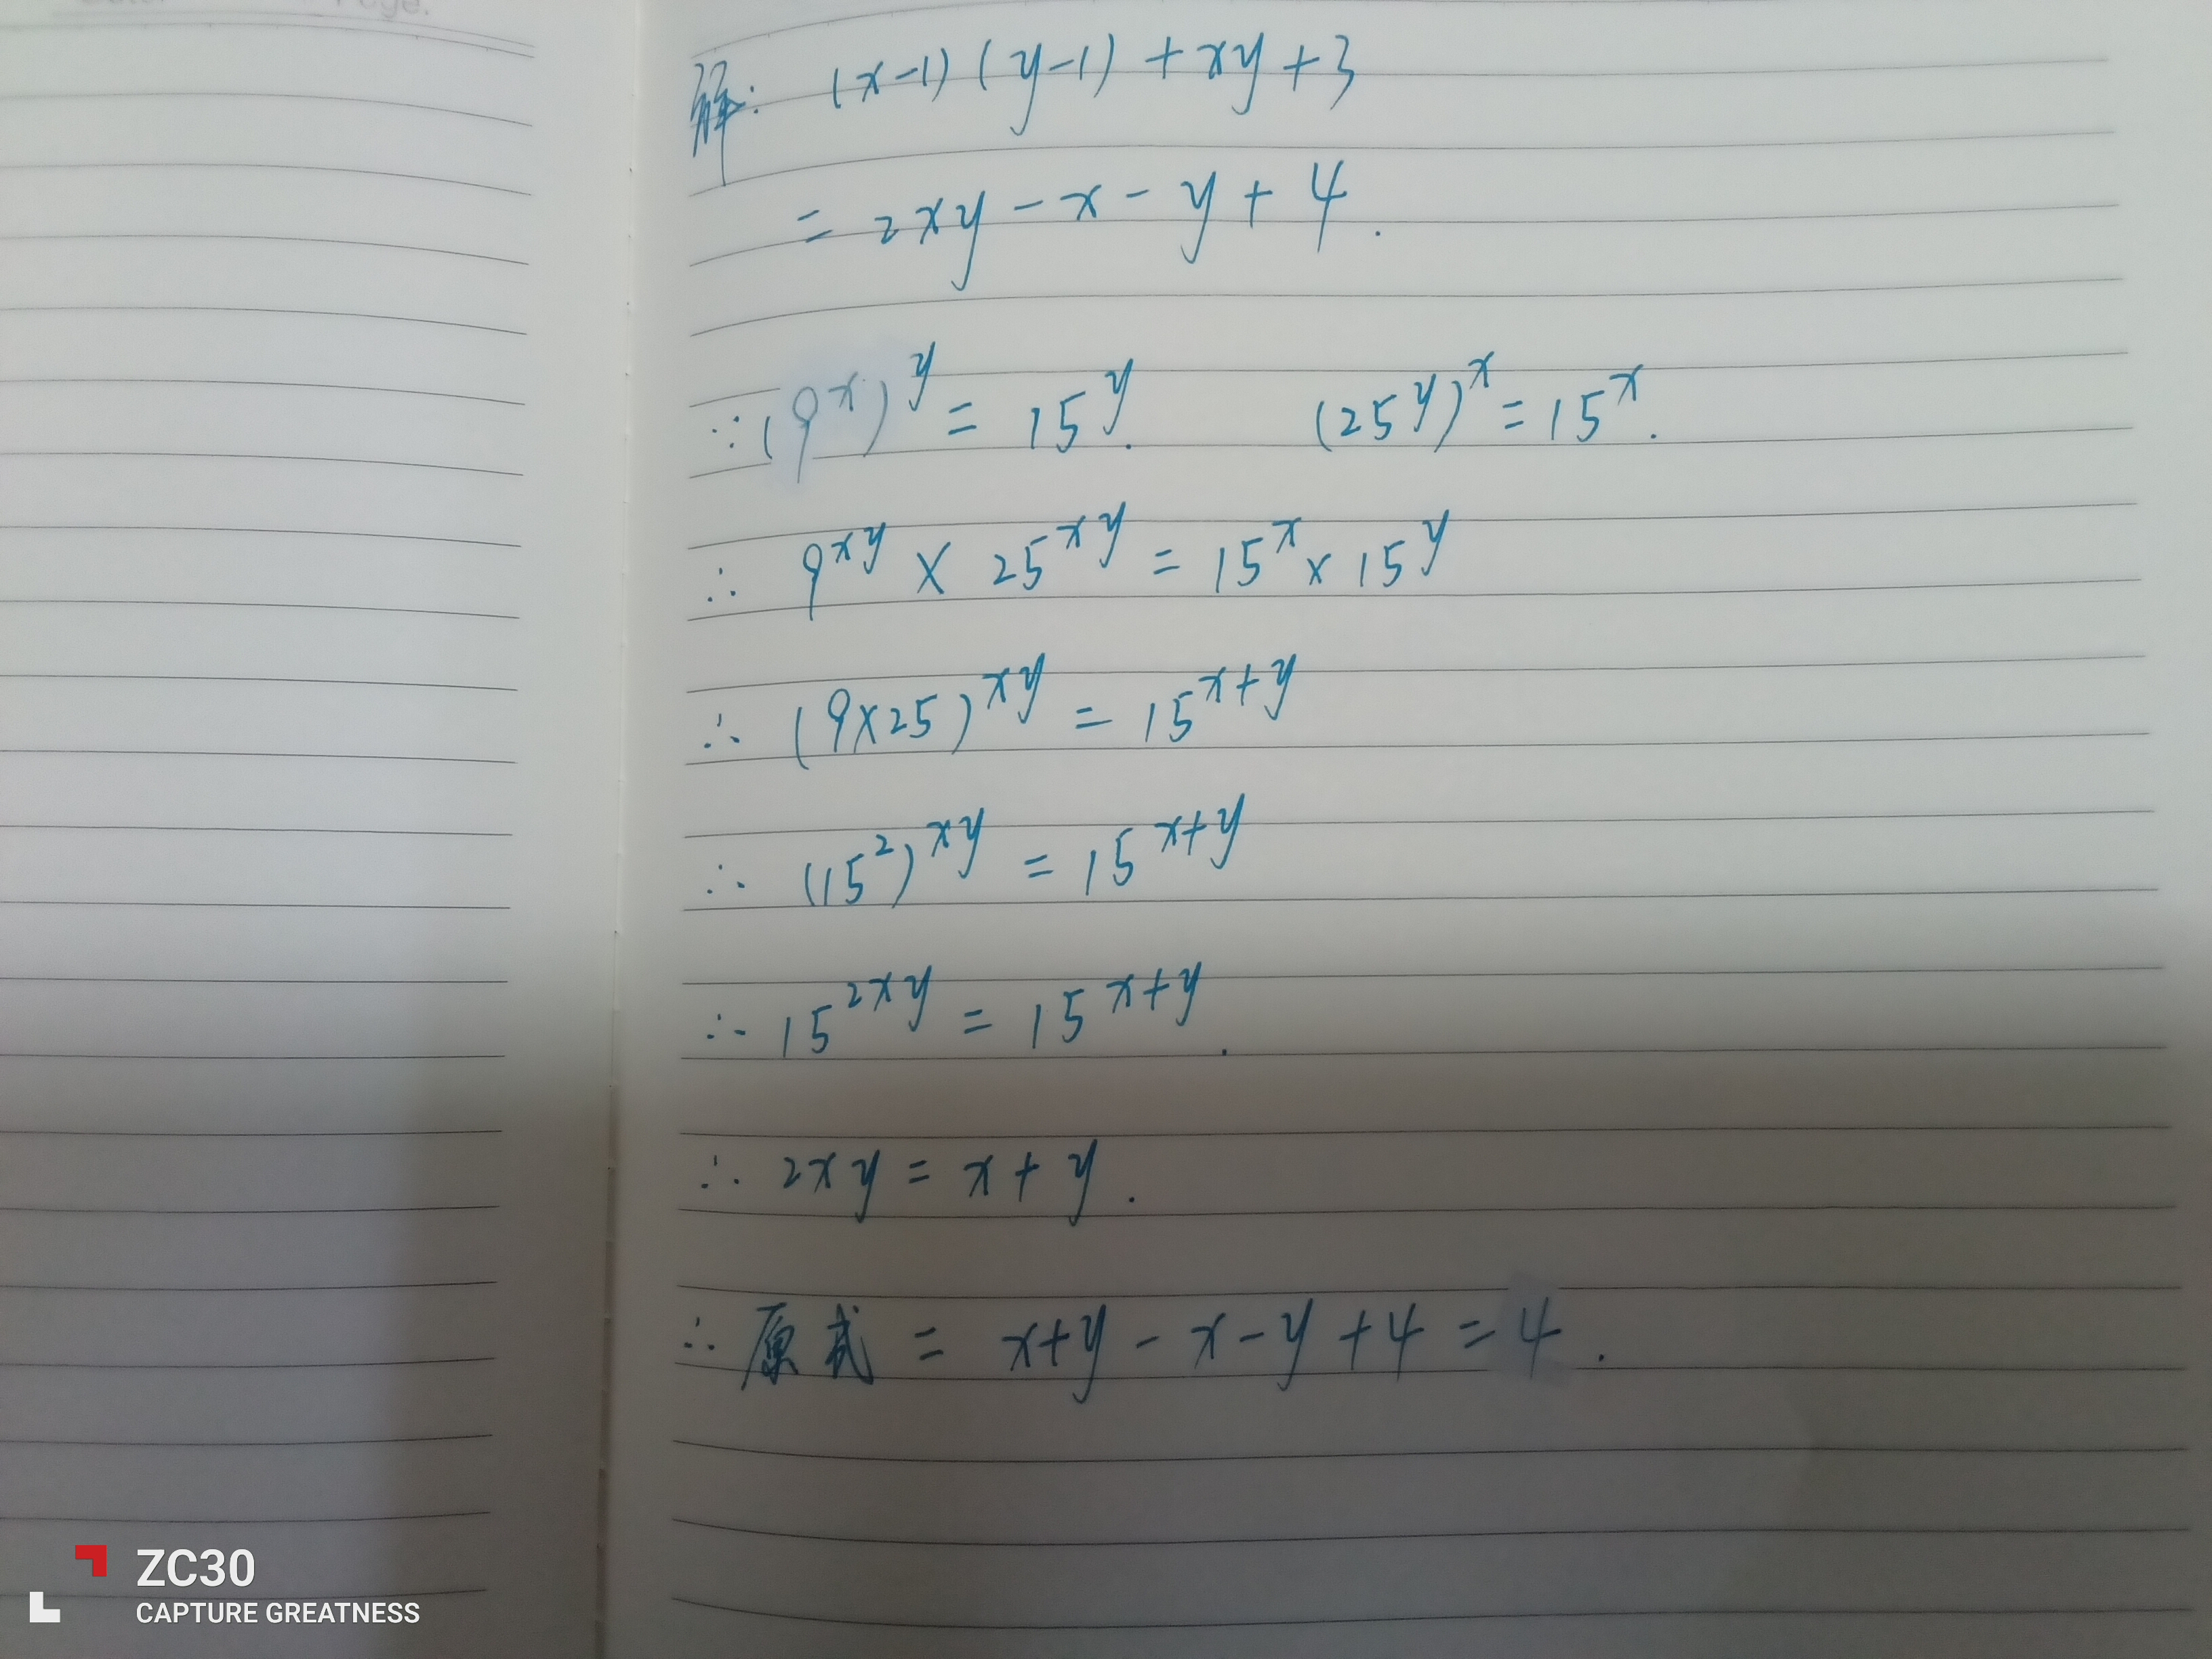 解: (x-1)(y-1)+xy+3
= 2xy-x-y+4.
∵(9^x)^y = 15^y. (25^y)^x = 15^x.
∴ 9^xy × 25^xy = 15^x × 15^y
∴ (9×25)^xy = 15^x+y
∴ (15^2)^xy = 15^x+y
∴ 15^2xy = 15^x+y.
∴ 2xy = x+y.
∴ 原式 = x+y-x-y+4=4.
ZC30
CAPTURE GREATNESS